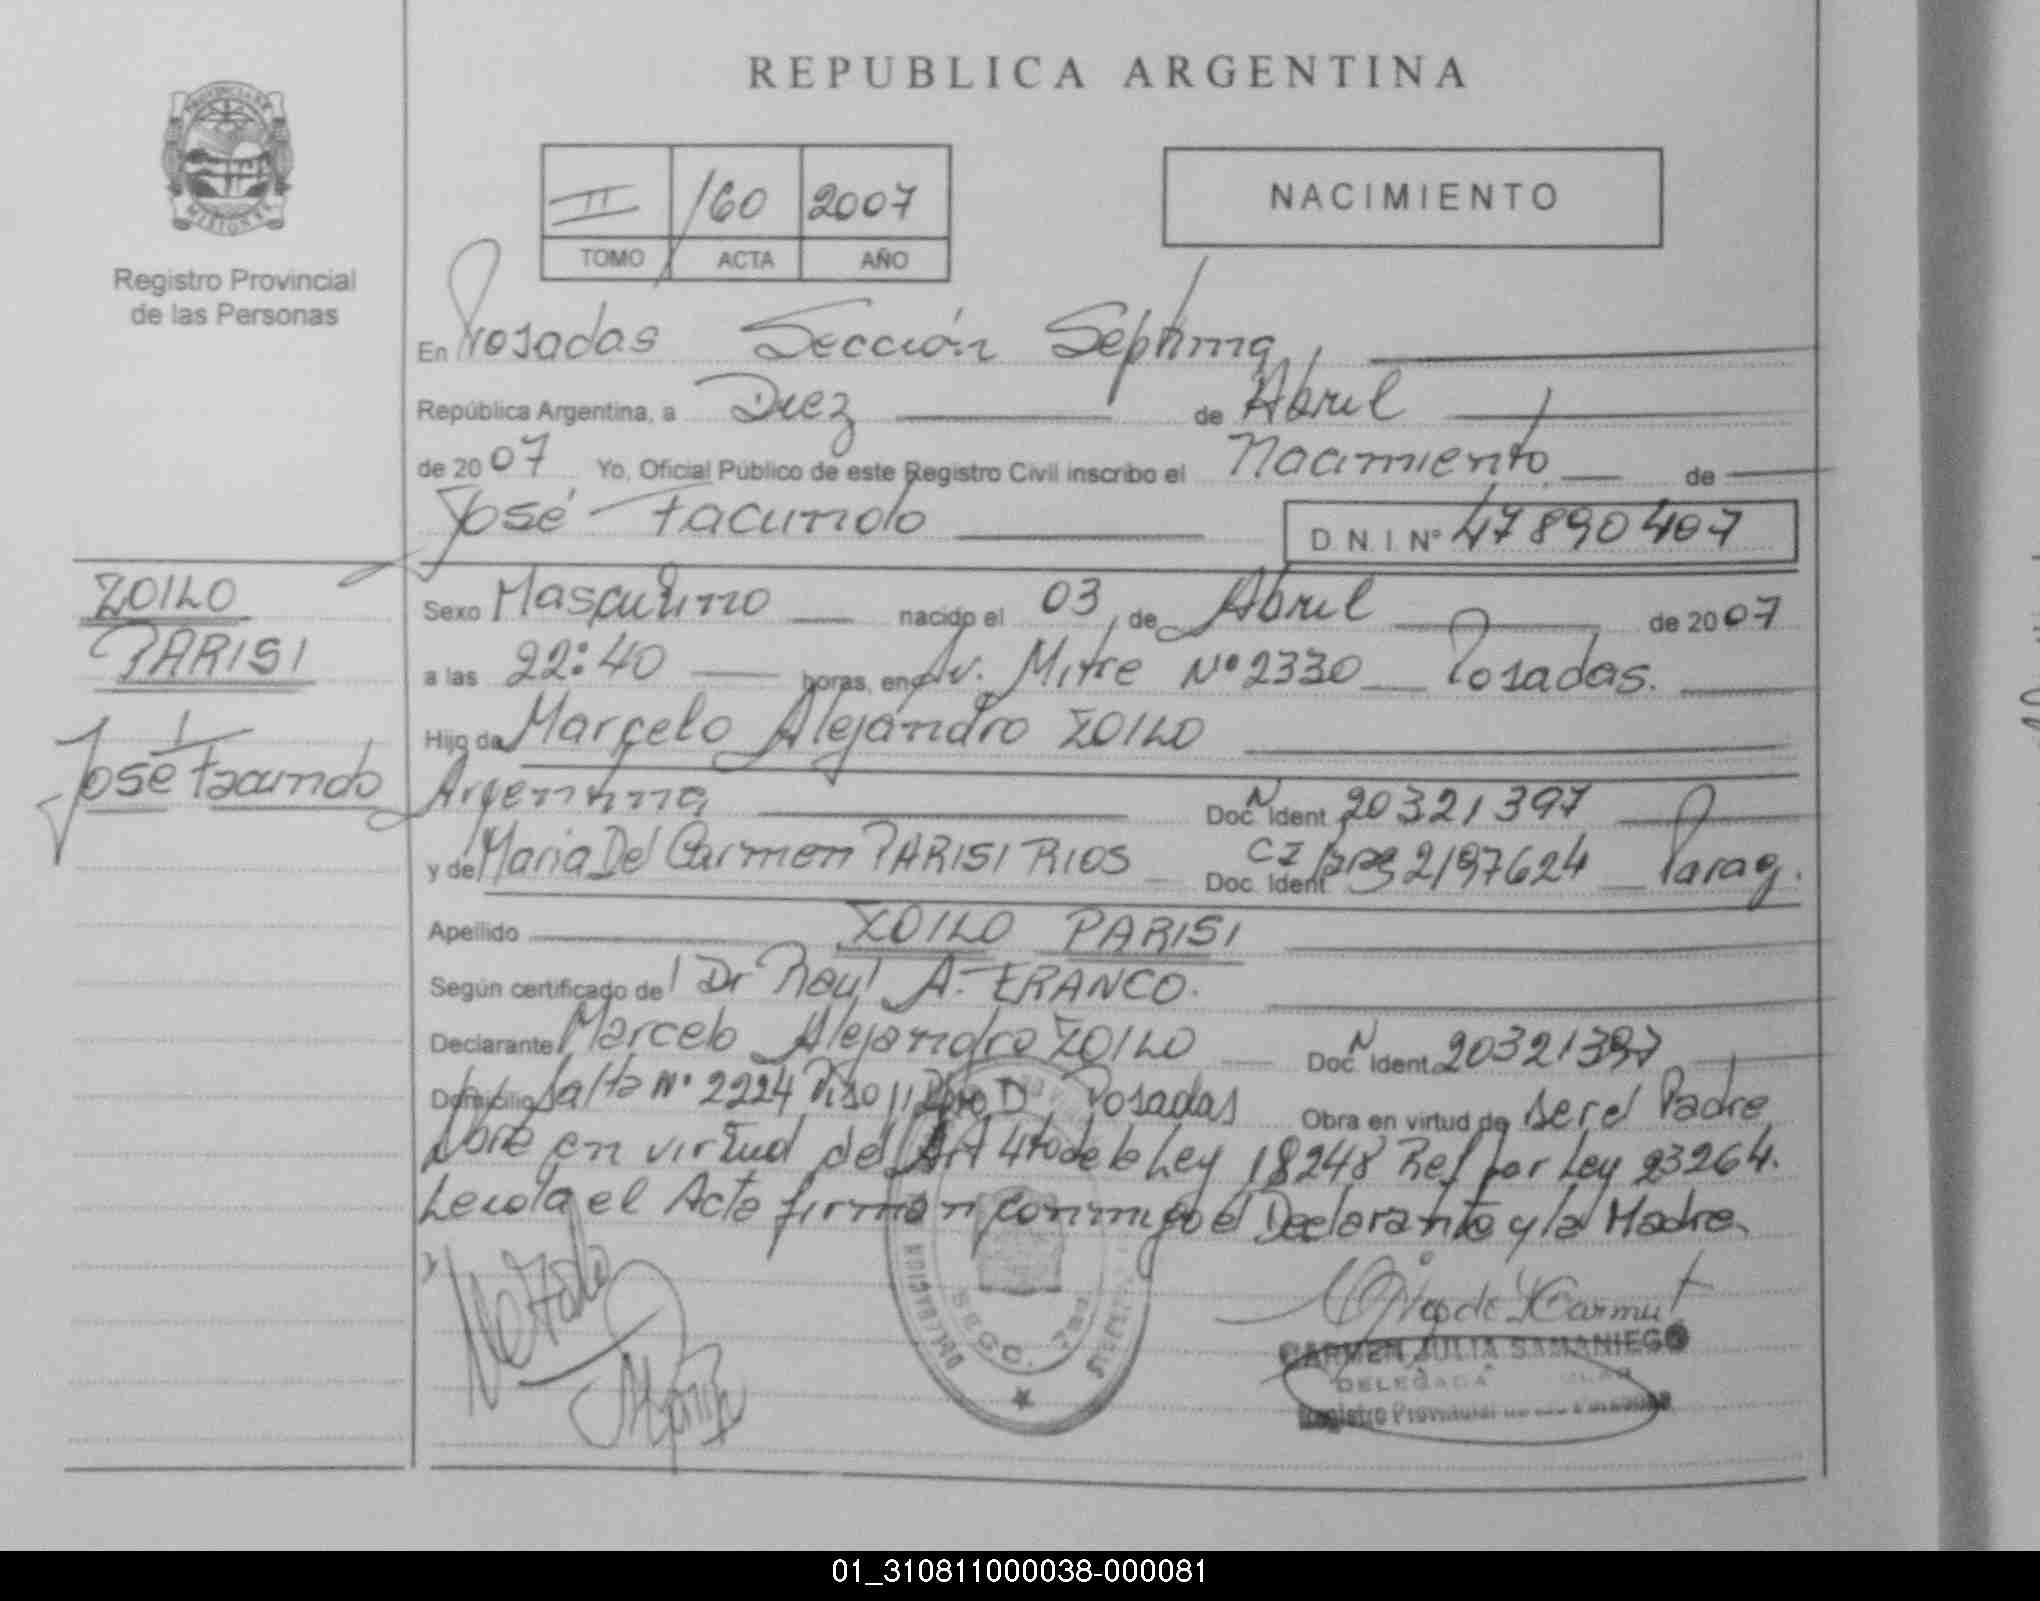 REPUBLICA ARGENTINA
PROVINCIA DE
MISIONES
Registro Provincial
de las Personas
II 160 2007
TOMO ACTA AÑO
NACIMIENTO
En Posadas Sección Séptima
República Argentina, a Diez de Abril
de 2007 Yo, Oficial Público de este Registro Civil inscribo el Nacimiento de
José Facundo D.N.I. Nº 47890407
ZOILO
PARISI
José Facundo
Sexo Masculino nacido el 03 de Abril de 2007
a las 22:40 horas, en Av. Mitre Nº 2330 Posadas.
Hijo de Marcelo Alejandro ZOILO
Argentina Doc. Ident. N 20321397
y de Maria Del Carmen PARISI RIOS Doc. Ident. CI 2197624 Parag.
Apellido ZOILO PARISI
Según certificado del Dr Raul A. FRANCO.
Declarante Marcelo Alejandro ZOILO Doc. Ident. N 20321397
Domicilio Salta Nº 2224 Piso 11 D Posadas Obra en virtud de ser el Padre
en virtud del Art 4to de la Ley 18248 Ref por Ley 23264.
Leida el Acta firman conmigo el Declarante y la Madre.
DELEGACION
SEGC. 7ma.
CARMEN JULIA SAMANIEGO
DELEGADA
Registro Provincial de las Personas
01_310811000038-000081